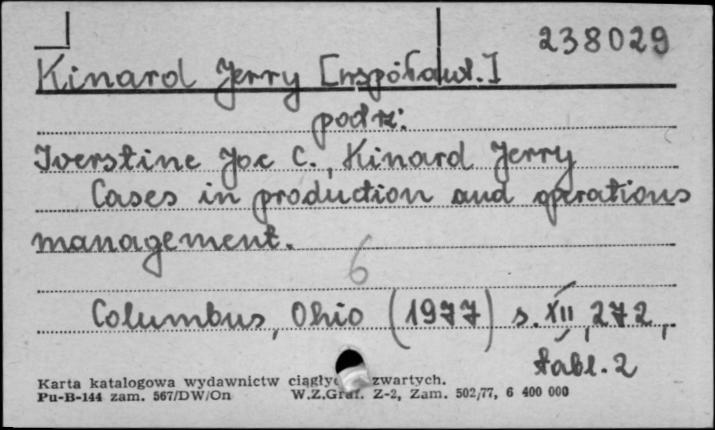 238029
Kinard Jerry [współaut.]
podrz:
Iverstine Joe C., Kinard Jerry
Cases in production and operations
management.
6
Columbus, Ohio (1977) s. XII, 272,
tabl. 2
Karta katalogowa wydawnictw zwartych.
Pu-B-144 zam. 567/DW/On W.Z.Graf. Z-2, Zam. 502/77, 6 400 000